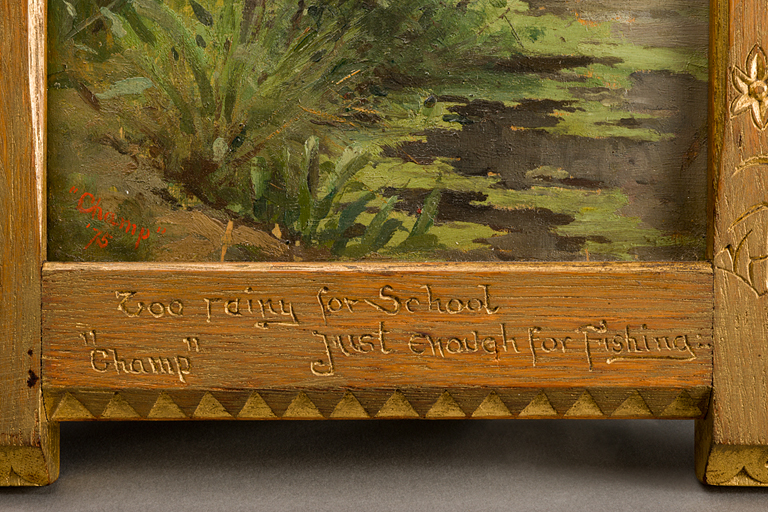 "Champ"
'79
Too rainy for School
"Champ" Just enough for Fishing:.